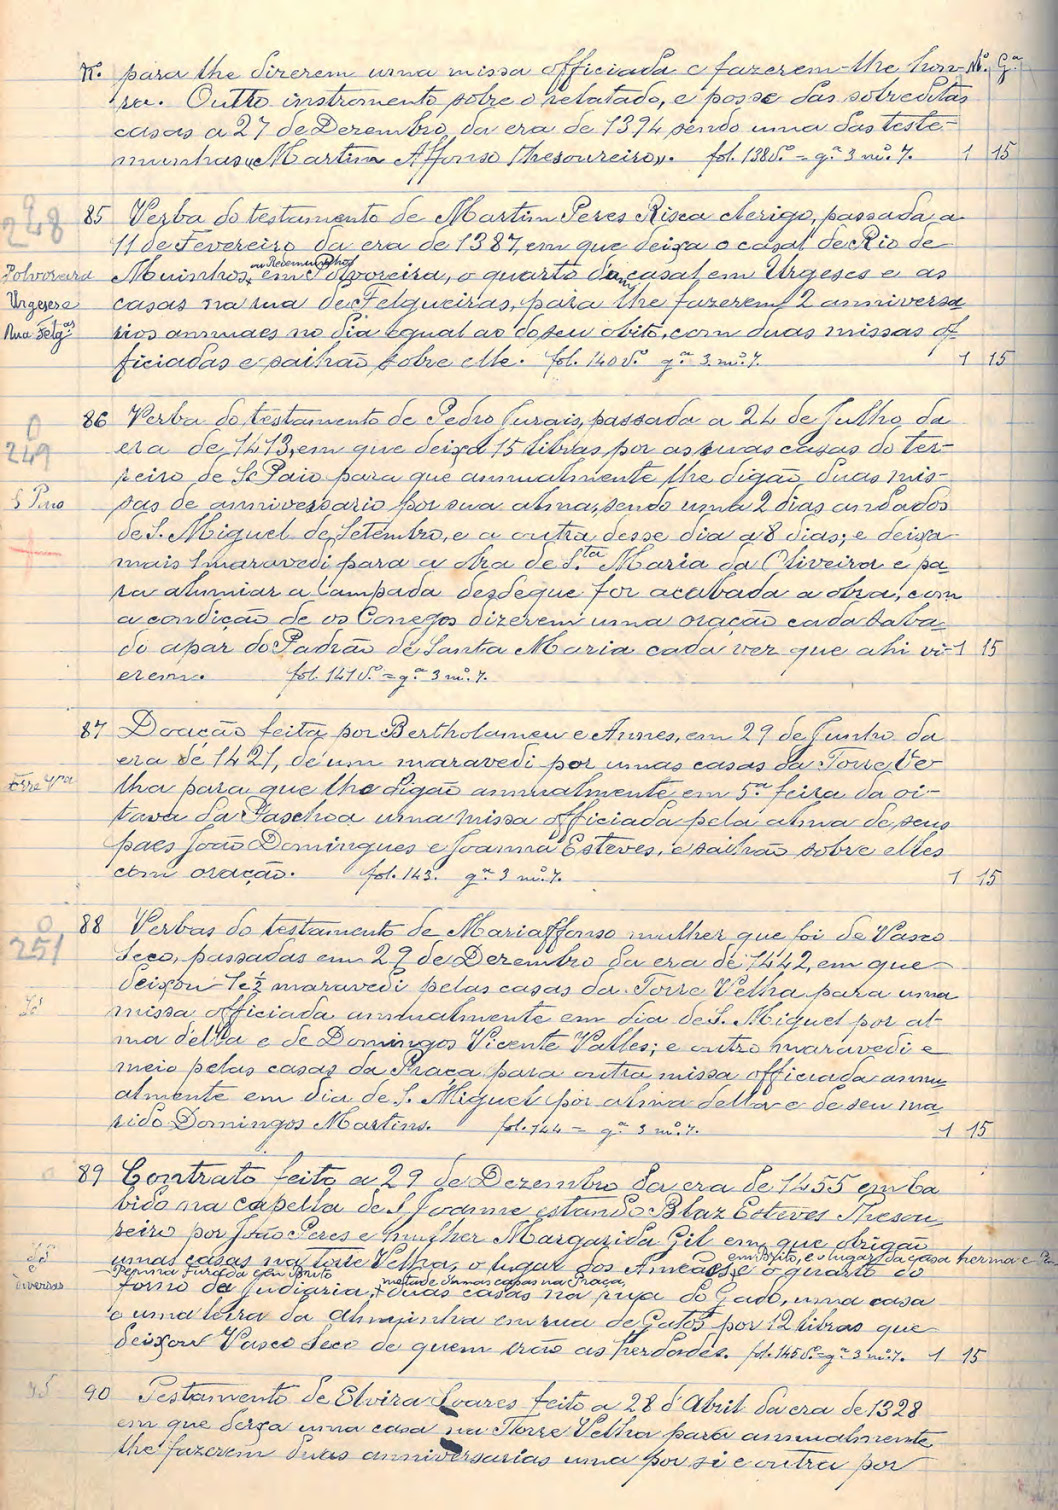 N.º para lhe dizerem uma missa officiada e fazerem-lhe hon- N.º G.ª
ra. Outro instromento sobre o relatado, e posse das sobreditas
casas a 27 de Dezembro da era de 1394, sendo uma das teste-
munhas "Martim Affonso Thesoureiro". fol. 138 v.º = g.ª 3 m.º 7. 1 15
248
85 Verba do testamento de Martim Peres Risca clerigo, passada a
11 de Fevereiro da era de 1387, em que deixa o casal de Rio de
ou Recemunhos
Polvoreira Muinhos, em Polvoreira, o quarto do casal em Urgeses e as
Urgeses e casas na rua de Felgueiras, para lhe fazerem 2 anniversa-
Rua Felg.as rios annuaes no dia egual ao do seu obito, com duas missas of-
ficiadas e saihão sobre elle. fol. 140 v.º g.ª 3 m.º 7. 1 15
0
249
86 Verba do testamento de Pedro Gurais, passada a 24 de Julho da
era de 1413, em que deixa 15 libras por as suas casas do ter-
reiro de S. Paio para que annualmente lhe digão duas mis-
S Paio sas de anniversario por sua alma, sendo uma 2 dias andados
de S. Miguel de Setembro, e a outra desse dia a 8 dias; e deixa
mais 1 maravedi para a obra de S.ta Maria da Oliveira e pa-
ra alumiar a lampada desde que for acabada a obra, com
a condição de os Conegos dizerem uma oração cada saba-
do apar do Padrão de Santa Maria cada vez que ahi vi- 1 15
erem. fol. 141 v.º = g.ª 3 m.º 7.
87 Doação feita por Bertholameu e Annes, em 29 de Junho da
era de 1421, de um maravedi por umas casas da Torre Ve-
Torre V.ª lha para que lhe digão annualmente em 5.ª feira da oi-
tava da Paschoa uma missa officiada pela alma de seus
paes João Domingues e Joanna Esteves, e saihão sobre elles
com oração. fol. 143. g.ª 3 m.º 7. 1 15
0
251
88 Verbas do testamento de Maria Affonso mulher que foi de Vasco
Seco, passadas em 29 de Dezembro da era de 1442, em que
deixou 1 e ½ maravedi pelas casas da Torre Velha para uma
missa officiada annualmente em dia de S. Miguel por al-
ma della e de Domingos Vicente Valles; e outro maravedi e
meio pelas casas da Praça para outra missa officiada annu-
almente em dia de S. Miguel por alma della e de seu ma-
rido Domingos Martins. fol. 144 = g.ª 3 m.º 7. 1 15
89 Contrato feito a 29 de Dezembro da era de 1455 em Ca-
bido na capella de S. Joanne estando Blaz Esteves Thesou-
reiro por João Peres e mulher Margarida Gil em que obrigão
em Brito, e o lugar da Casa herma e
umas casas na torre Velha, o lugar dos Ameaes, e o quarto do
Penna Furada em Brito metade dumas casas na Praça,
e diversos forno da Judiaria, + duas casas na rua do Gado, uma casa
e uma leira da almuinha em rua de Gatos por 12 libras que
deixou Vasco Seco de quem vrão as herdades. fol. 145 v.º = g.ª 3 m.º 7. 1 15
90 Testamento de Elvira Soares feito a 28 d'Abril da era de 1328
em que deixa uma casa na Torre Velha para annualmente
lhe fazerem duas anniversarias uma por si e outra por